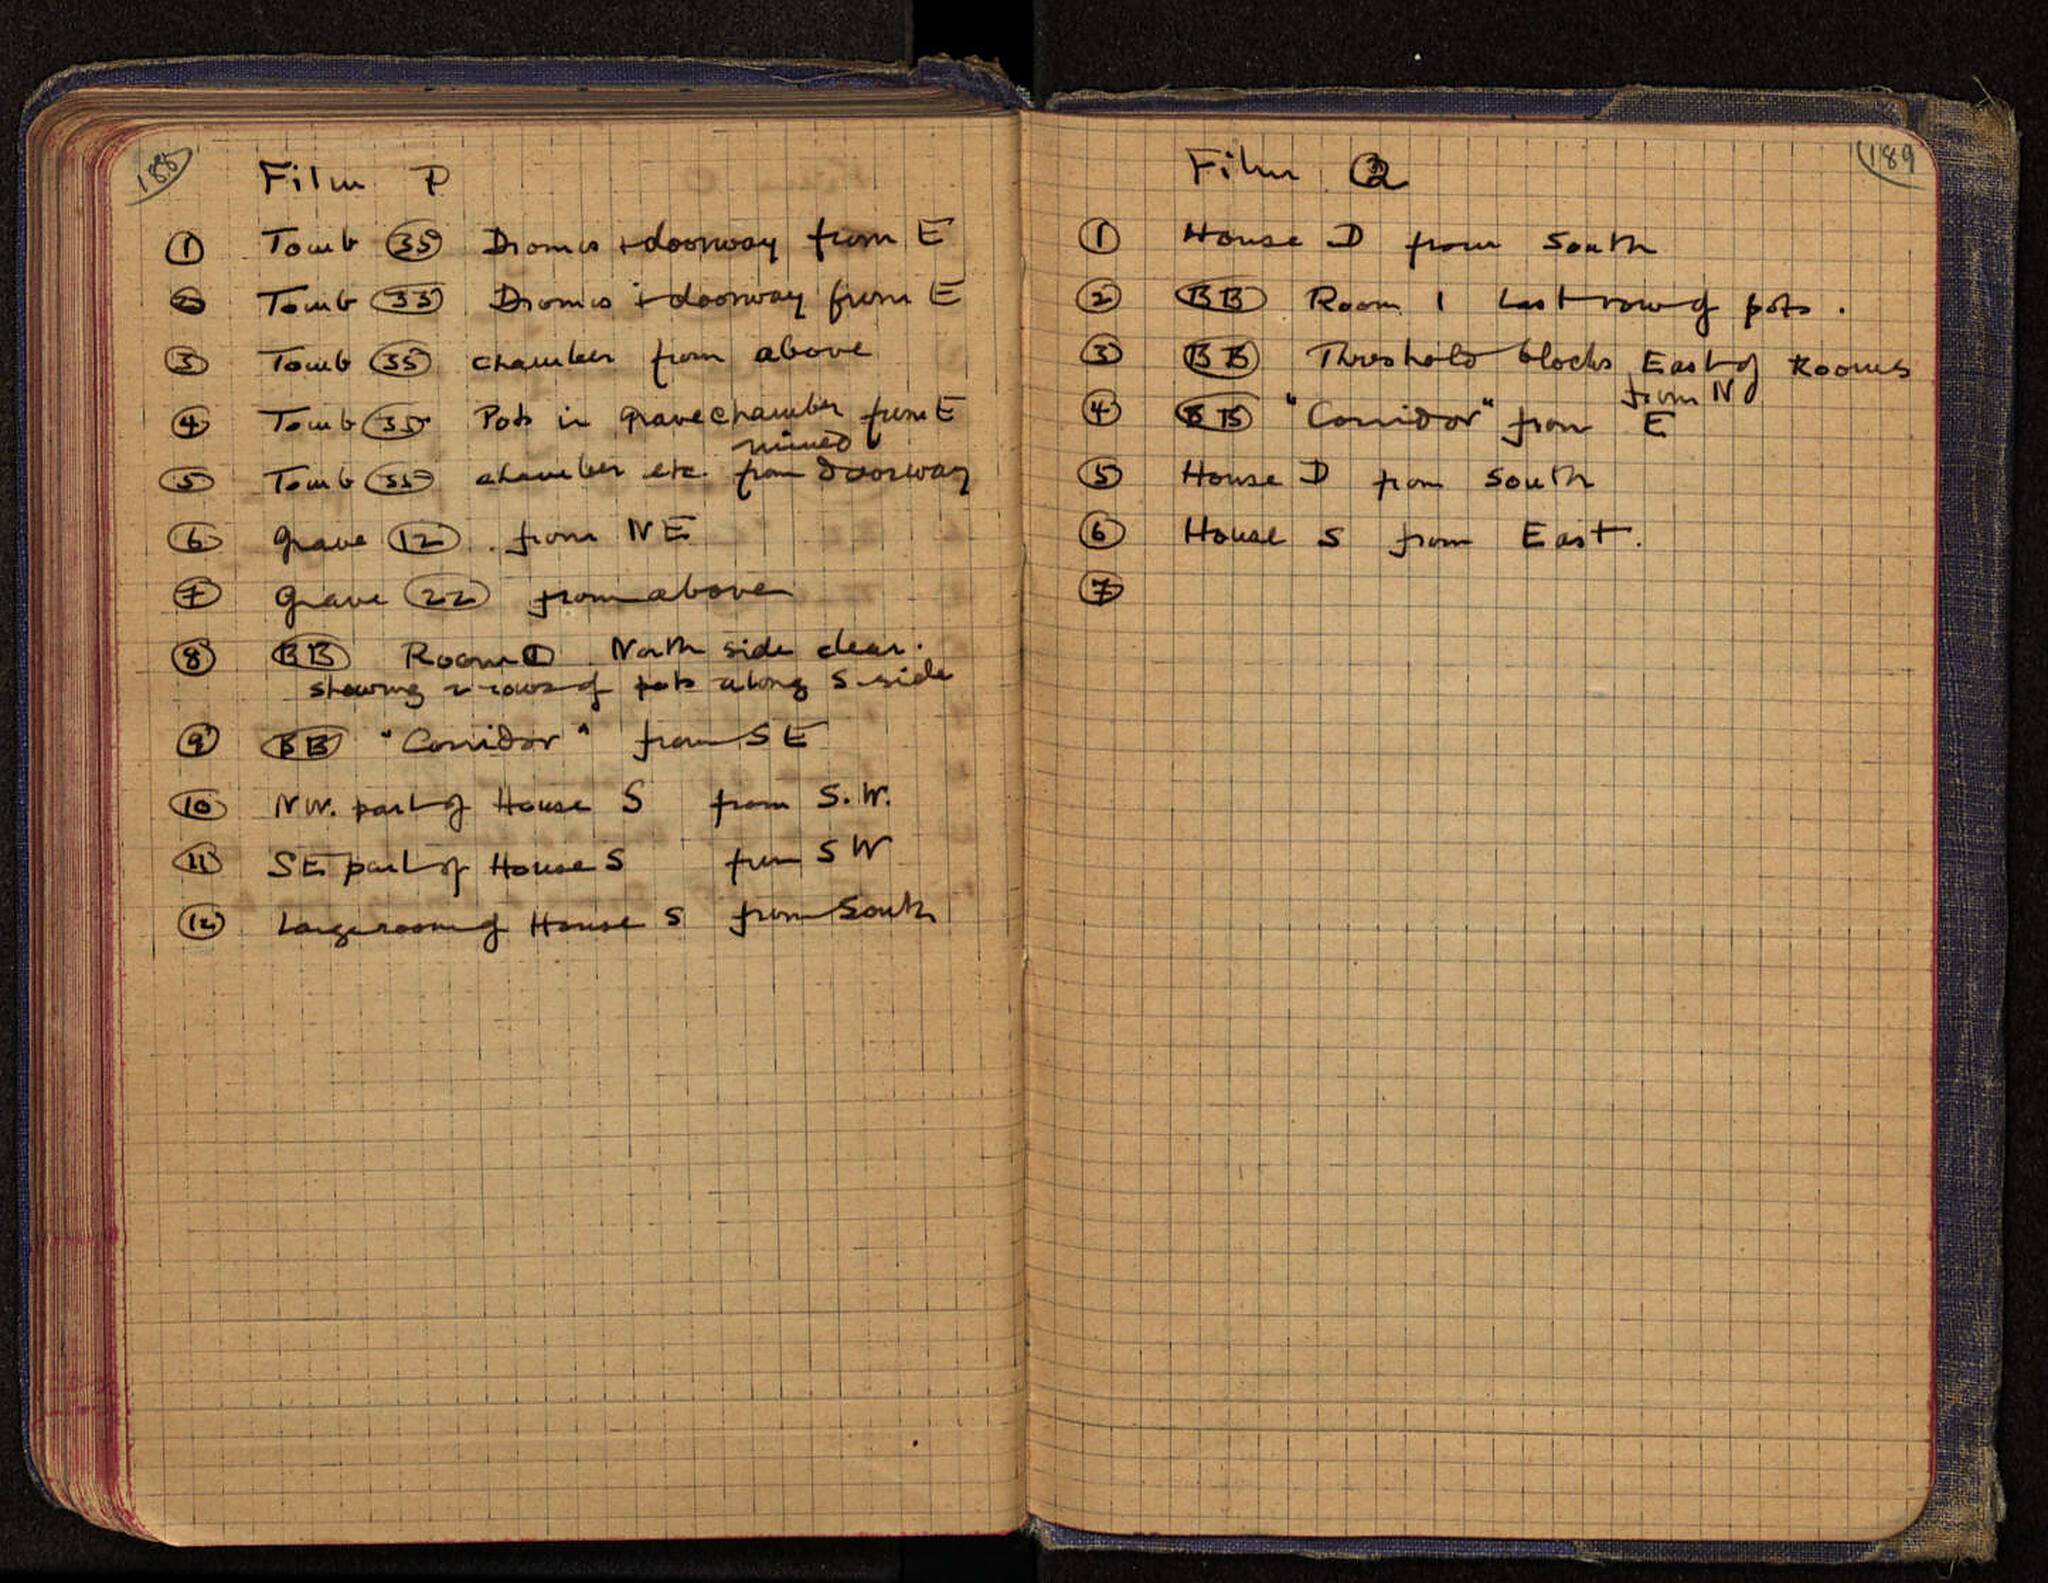 188
Film P
① Tomb 35 Dromos + doorway from E
② Tomb 35 Dromos + doorway from E
③ Tomb 35 chamber from above
④ Tomb 35 Pots in grave chamber from E
ruined
⑤ Tomb 35 chamber etc. from doorway
⑥ Grave 12 . from NE
⑦ Grave 22 from above
⑧ BB Room 1 North side clear.
showing 2 rows of pots along S side
⑨ BB "Corridor" from SE
⑩ NW. part of House S from S.W.
⑪ SE part of House S from SW
⑫ Large room of House S from South
189
Film Q
① House D from South
② BB Room 1 Last row of pots .
③ BB Threshold blocks East of Rooms
from N
④ BB "Corridor" from E
⑤ House D from South
⑥ House S from East.
⑦